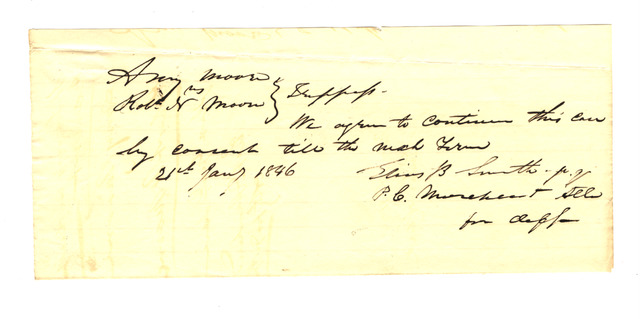 Amy Moore
vs
Robt. N Moore } Trespass.
We agree to continue this case
by consent till the next Term
21st Jany 1846
Elias B Smith p. q.
P. C. Morehead Atto
for deft